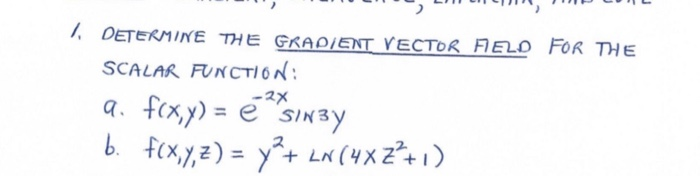 1. DETERMINE THE GRADIENT VECTOR FIELD FOR THE
SCALAR FUNCTION:
a. f(x,y) = e^{-2x} SIN3y
b. f(x,y,z) = y² + LN(4xz²+1)